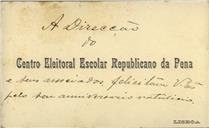 A Direcção
do
Centro Eleitoral Escolar Republicano da Pena
e seus associados, felicitam V. Ex.
pelo seu anniversario natalicio.
LISBOA